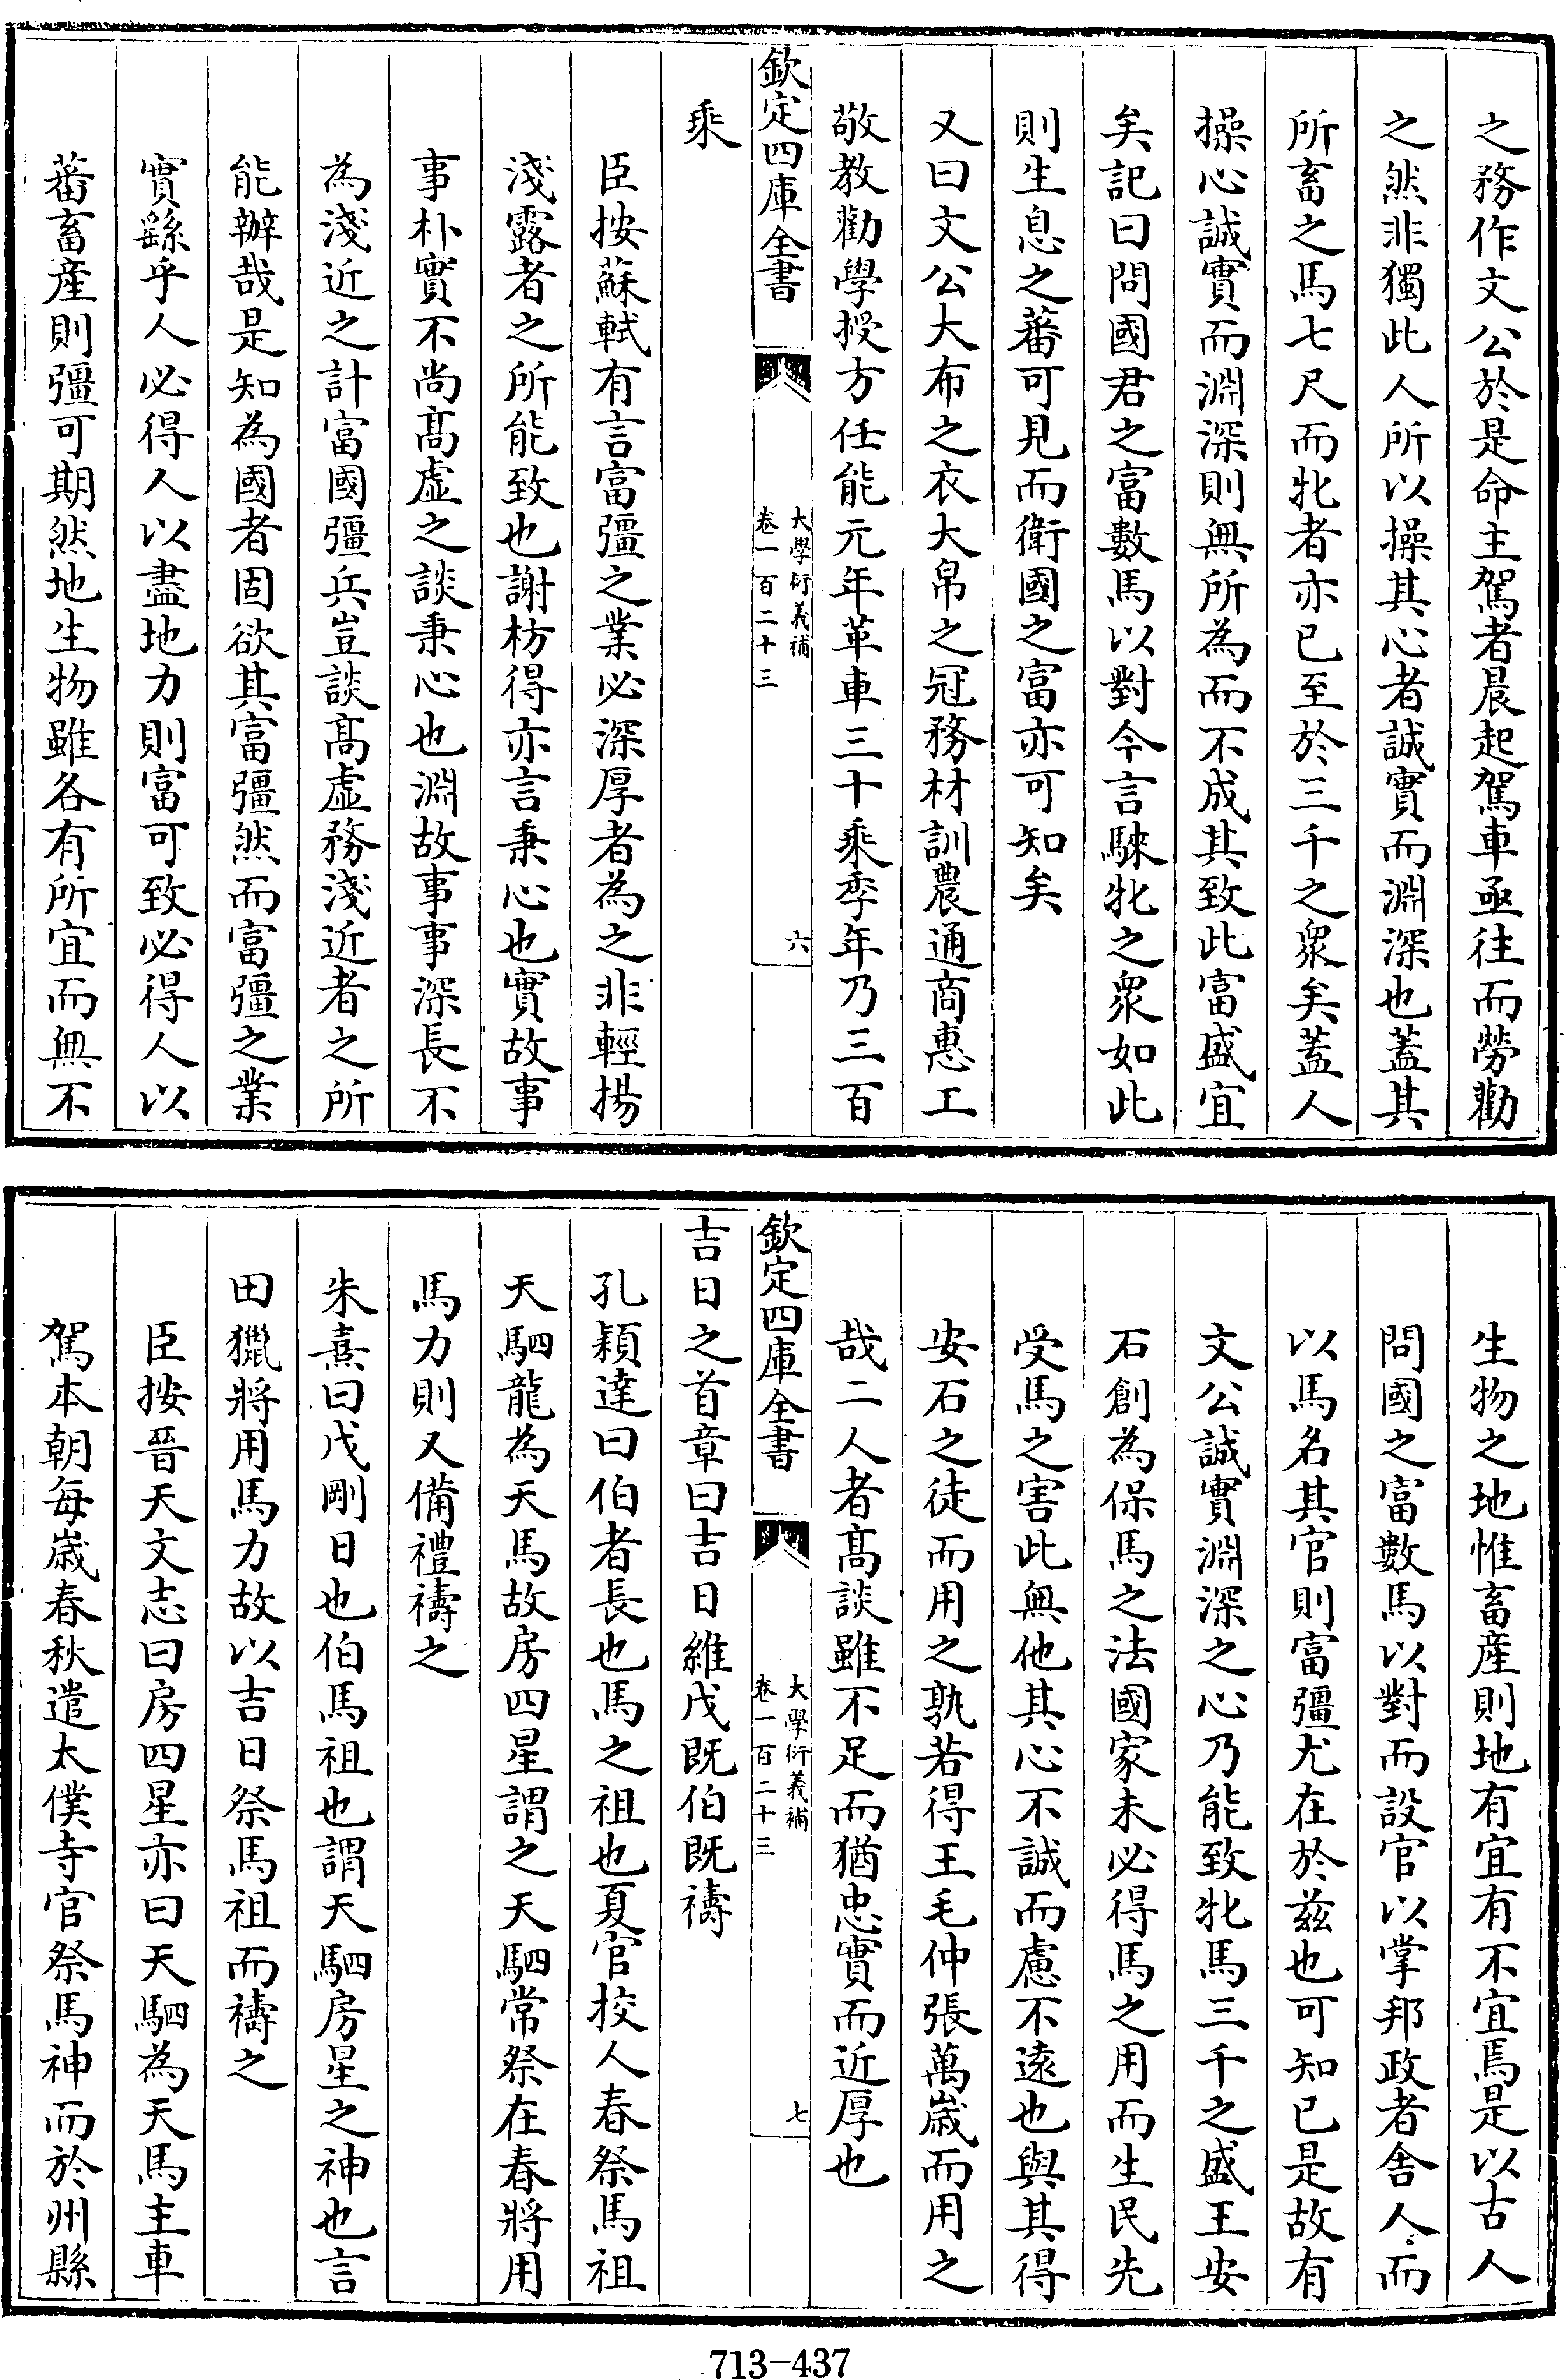 之務作文公於是命主駕者晨起駕車亟往而勞勸
之然非獨此人所以操其心者誠實而淵深也蓋其
所畜之馬七尺而牝者亦已至於三千之衆矣蓋人
操心誠實而淵深則無所為而不成其致此富盛宜
矣記曰問國君之富數馬以對今言騋牝之衆如此
則生息之蕃可見而衛國之富亦可知矣
又曰文公大布之衣大帛之冠務材訓農通商惠工
敬教勸學授方任能元年革車三十乘季年乃三百
欽定四庫全書
大學衍義補
卷一百二十三
六
乘
臣按蘇軾有言富彊之業必深厚者為之非輕揚
淺露者之所能致也謝枋得亦言秉心也實故事
事朴實不尚高虛之談秉心也淵故事事深長不
為淺近之計富國彊兵豈談高虛務淺近者之所
能辦哉是知為國者固欲其富彊然而富彊之業
實繇乎人必得人以盡地力則富可致必得人以
蕃畜產則彊可期然地生物雖各有所宜而無不
生物之地惟畜產則地有宜有不宜焉是以古人
問國之富數馬以對而設官以掌邦政者舍人而
以馬名其官則富彊尤在於茲也可知已是故有
文公誠實淵深之心乃能致牝馬三千之盛王安
石創為保馬之法國家未必得馬之用而生民先
受馬之害此無他其心不誠而慮不遠也與其得
安石之徒而用之孰若得王毛仲張萬歲而用之
哉二人者高談雖不足而猶忠實而近厚也
欽定四庫全書
大學衍義補
卷一百二十三
七
吉日之首章曰吉日維戊既伯既禱
孔穎達曰伯者長也馬之祖也夏官校人春祭馬祖
天駟龍為天馬故房四星謂之天駟常祭在春將用
馬力則又備禮禱之
朱熹曰戊剛日也伯馬祖也謂天駟房星之神也言
田獵將用馬力故以吉日祭馬祖而禱之
臣按晉天文志曰房四星亦曰天駟為天馬主車
駕本朝每歲春秋遣太僕寺官祭馬神而於州縣
713-437